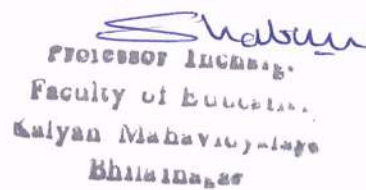 Professor Incharge.
Faculty of Education.
Kalyan Mahavidyalaya
Bhilainagar